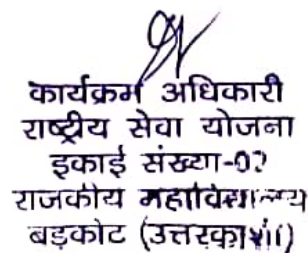 कार्यक्रम अधिकारी
राष्ट्रीय सेवा योजना
इकाई संख्या-02
राजकीय महाविद्यालय
बड़कोट (उत्तरकाशी)